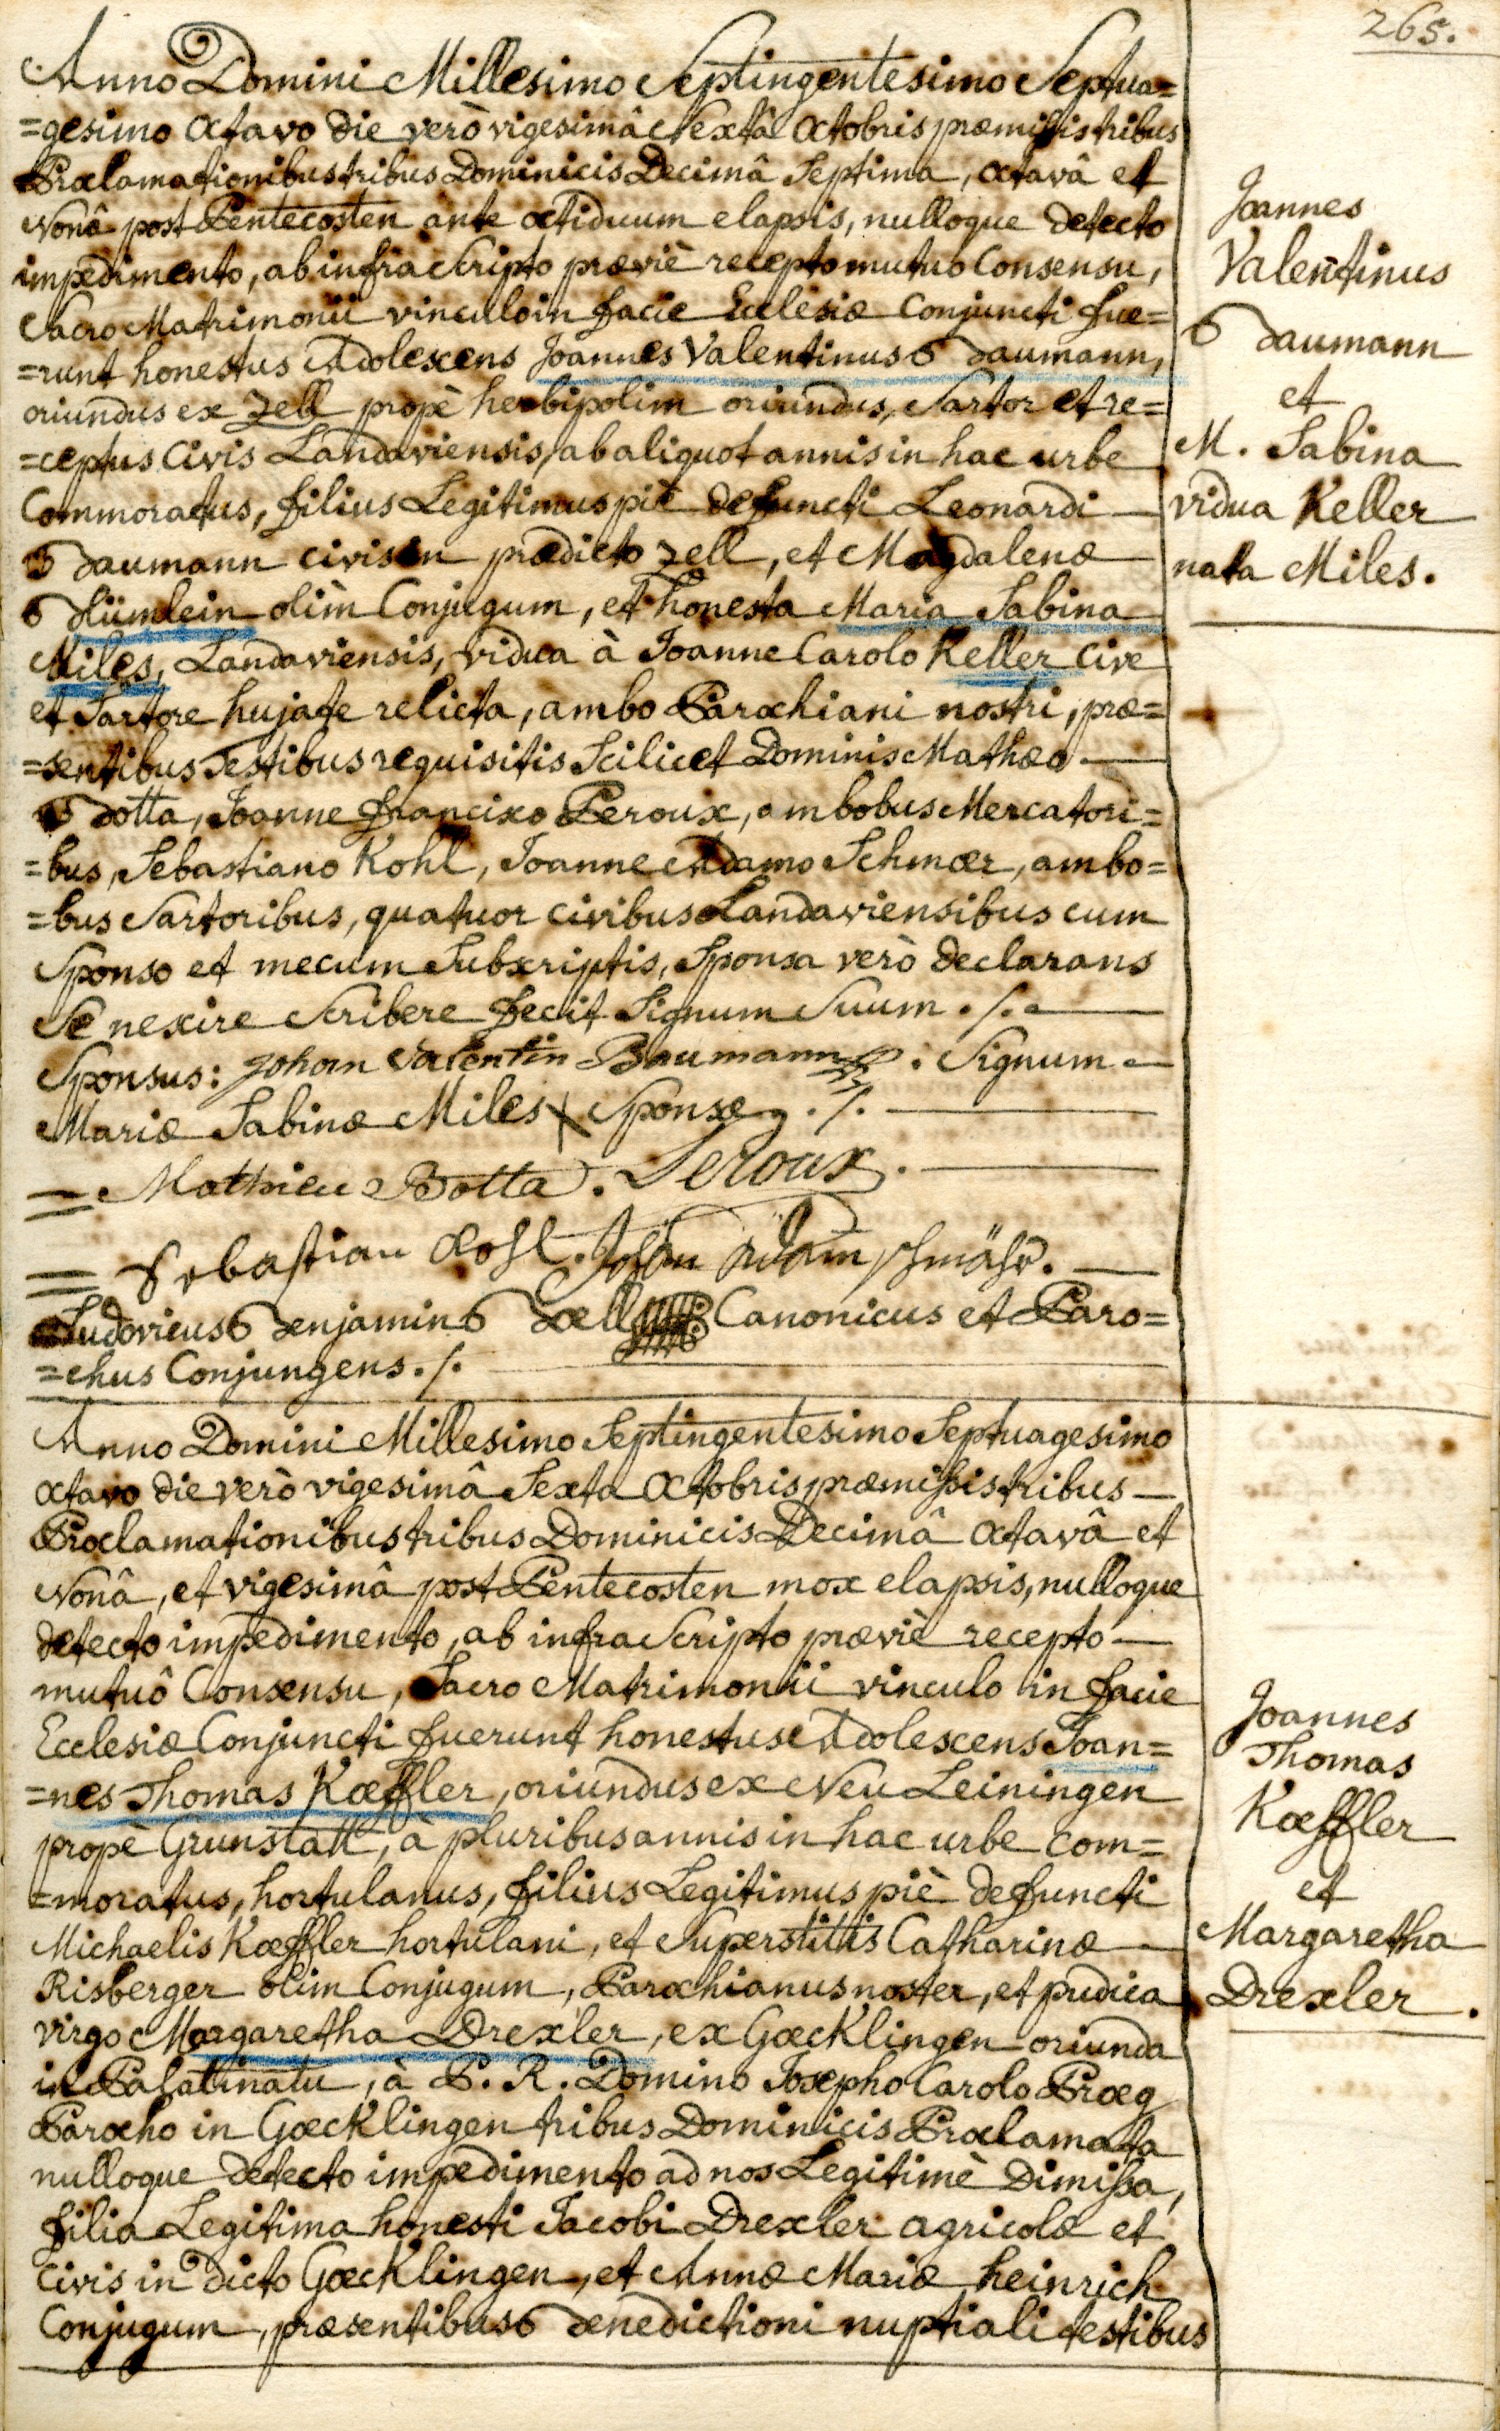 265.
Anno Domini Millesimo Septingentesimo Septua=
=gesimo octavo die verò vigesimâ Sextâ octobris præmissis tribus
Proclamationibus tribus Dominicis Decimâ Septima, octavâ et
Nonâ post Pentecosten ante octiduum elapsis, nulloque detecto
impedimento, ab infra Scripto præviè recepto mutuo Consensu,
Sacro Matrimonii vinculo in facie Ecclesiæ Conjuncti fue=
=runt honestus Adolescens Joannes Valentinus Baumann,
oriundus ex Zell propè herbipolim oriundus, Sartor et re=
=ceptus Civis Landaviensis, ab aliquot annis in hac urbe
Commoratus, filius Legitimus piè defuncti Leonardi
Baumann civis in prædicto Zell, et Magdalenæ
Blümlein olim Conjugum, et honesta Maria Sabina
Miles, Landaviensis, vidua à Joanne Carolo Keller Cive
et Sartore hujate relicta, ambo Parochiani nostri, præ=
=sentibus Testibus requisitis Scilicet Dominis Mathæo
Botta, Joanne francisco Peroux, ambobus Mercatori=
=bus, Sebastiano Kohl, Joanne Adamo Schmær, ambo=
=bus Sartoribus, quatuor civibus Landaviensibus cum
Sponso et mecum Subscriptis, Sponsa verò declarans
Se nescire Scribere fecit Signum Suum ./.
Sponsus: Johan Valentin Baumann. Signum
Mariæ Sabinæ Miles X Sponsæ ./.
= Mathieu Botta. Peroux.
= Sebastian Kohl. Johan Adam Schmähr.
Ludovicus Benjamin Boell Canonicus et Paro=
=chus Conjungens ./.
Joannes
Valentinus
Baumann
et
M. Sabina
vidua Keller
nata Miles.
Anno Domini Millesimo Septingentesimo Septuagesimo
octavo die verò vigesimâ Sexta Octobris, præmissis tribus
Proclamationibus tribus Dominicis Decimâ octavâ et
Nonâ, et vigesimâ post Pentecosten mox elapsis, nulloque
detecto impedimento, ab infra Scripto præviè recepto
mutuô Consensu, Sacro Matrimonii vinculo in facie
Ecclesiæ Conjuncti fuerunt honestus Adolescens Joan=
=nes Thomas Kœffler, oriundus ex Neu Leiningen
propè Grunstatt, à pluribus annis in hac urbe com=
=moratus, hortulanus, filius Legitimus piè defuncti
Michaelis Kœffler hortulani, et Superstitis Catharinæ
Risberger olim Conjugum, Parochianus noster, et pudica
virgo Margaretha Drexler, ex Gœcklingen oriunda
in Palatinatu, à P. R. Domino Josepho Carolo Præg
Parocho in Gœcklingen tribus Dominicis Proclamata
nulloque detecto impedimento ad nos Legitimè Dimissa,
filia Legitima honesti Jacobi Drexler agricolæ et
Civis in dicto Gœcklingen, et Annæ Mariæ heinrich
Conjugum, præsentibus Benedictioni nuptiali testibus
Joannes
Thomas
Kœffler
et
Margaretha
Drexler.